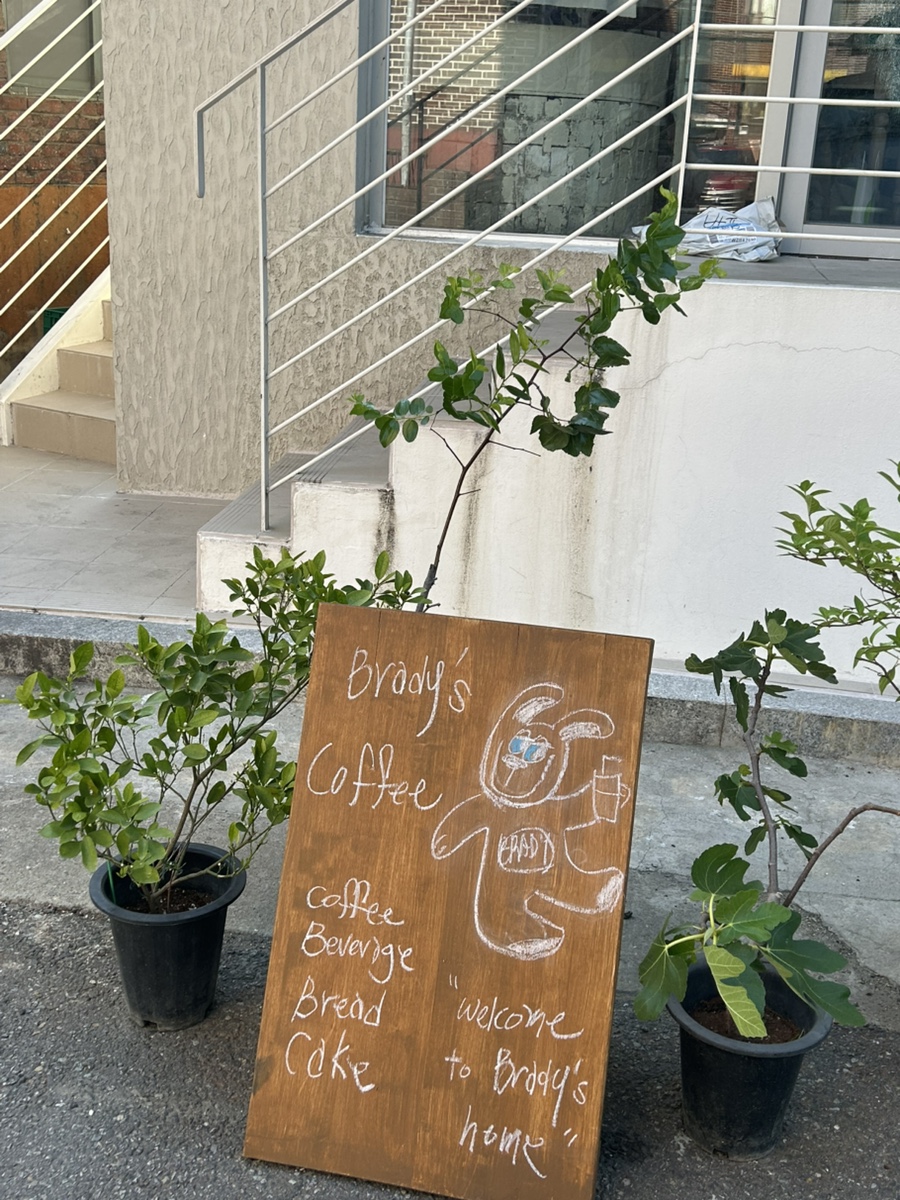 Brady's
Coffee
BRADY
coffee
Beverage
Bread
Cake
"welcome
to Brady's
home"